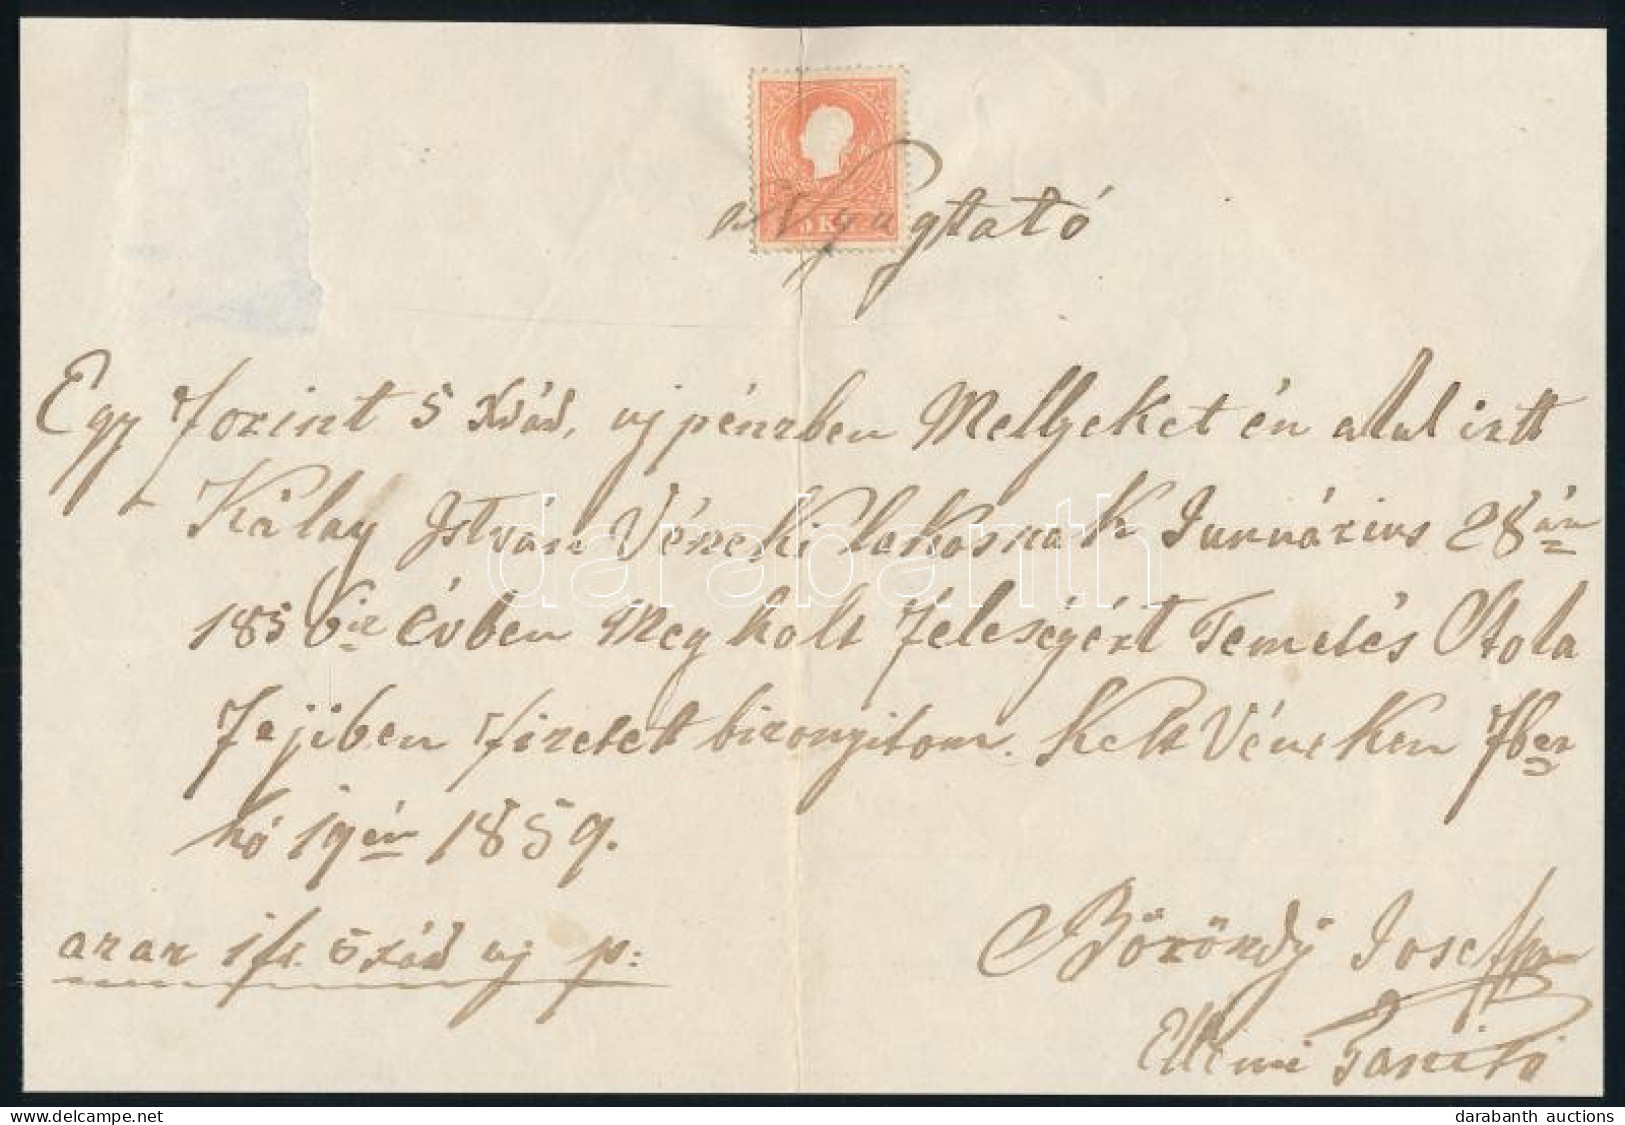 Nyugtató
5 KR
Egy forint 5 xád, uj pénzben Mellyeket én alal irtt
Kálay István Véneki lakosnak Januárius 28án
1856ik évben Megholt feleségéért Temetés Stola
fejiben fizetett bizonyitom. Kelt Véneken 7ber
hó 19én 1859.
azaz 1 fr. 5 xád uj p:
Böröndÿ Josef
Ellemi Tanitó
darabanth
delcampe.net
darabanth auctions